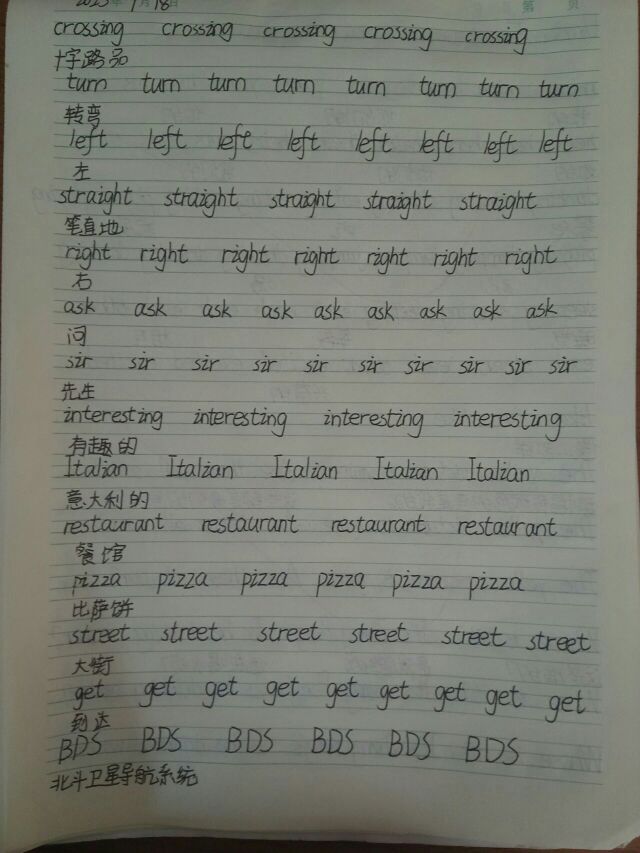 2023年9月18日 第 页
crossing crossing crossing crossing crossing
十字路口
turn turn turn turn turn turn turn turn
转弯
left left left left left left left left
左
straight straight straight straight straight
笔直地
right right right right right right right
右
ask ask ask ask ask ask ask ask ask
问
sir sir sir sir sir sir sir sir sir sir
先生
interesting interesting interesting interesting
有趣的
Italian Italian Italian Italian Italian
意大利的
restaurant restaurant restaurant restaurant
餐馆
pizza pizza pizza pizza pizza pizza
比萨饼
street street street street street street
大街
get get get get get get get get get
到达
BDS BDS BDS BDS BDS BDS
北斗卫星导航系统